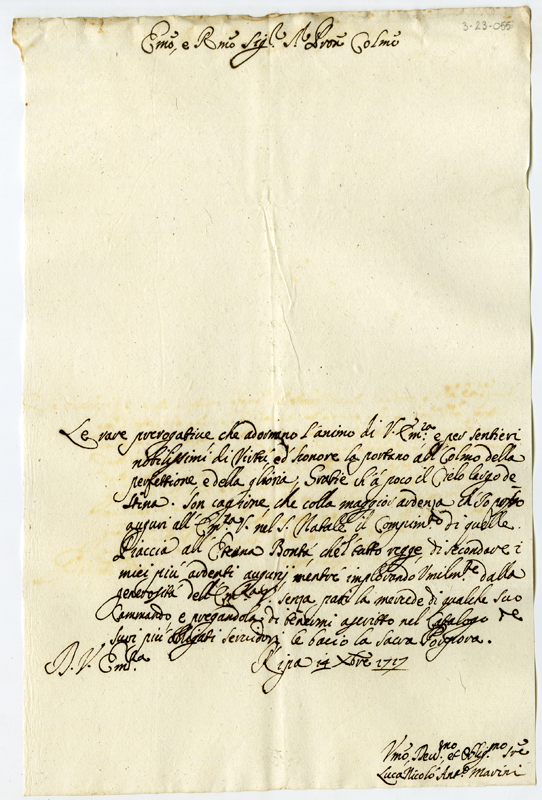 3-23-055
Emo, e Rmo Sigr. Pron Colmo
Le rare prerogative che adornano l'animo di V. Emza e per sentieri
nobilissimi di Virtù ed'honore la portano all Colmo della
perfettione e della gloria, Gratie ch'à poco il Cielo largo de
stina. Son cagione, che colla maggior ardenza ch'Io
auguri all' Emza V. nel S. Natale il Compimto di quelle.
Piaccia all' Eterna Bontà che'l tutto regge, di secondare i
miei più ardenti augurij mentre implorando Umilmte dalla
generosità dell' Emza V. senza pari la mercede di qualche suo
Commando e pregandola di tenermi ascritto nel Catalogo de
suoi più obligati servidori le bacio la Sacra Porpora.
D. V. Emza Ripa 14 Xbre 1717
Vmo, Devmo, et Obligmo Sre
Luca Nicolò Anto Marini